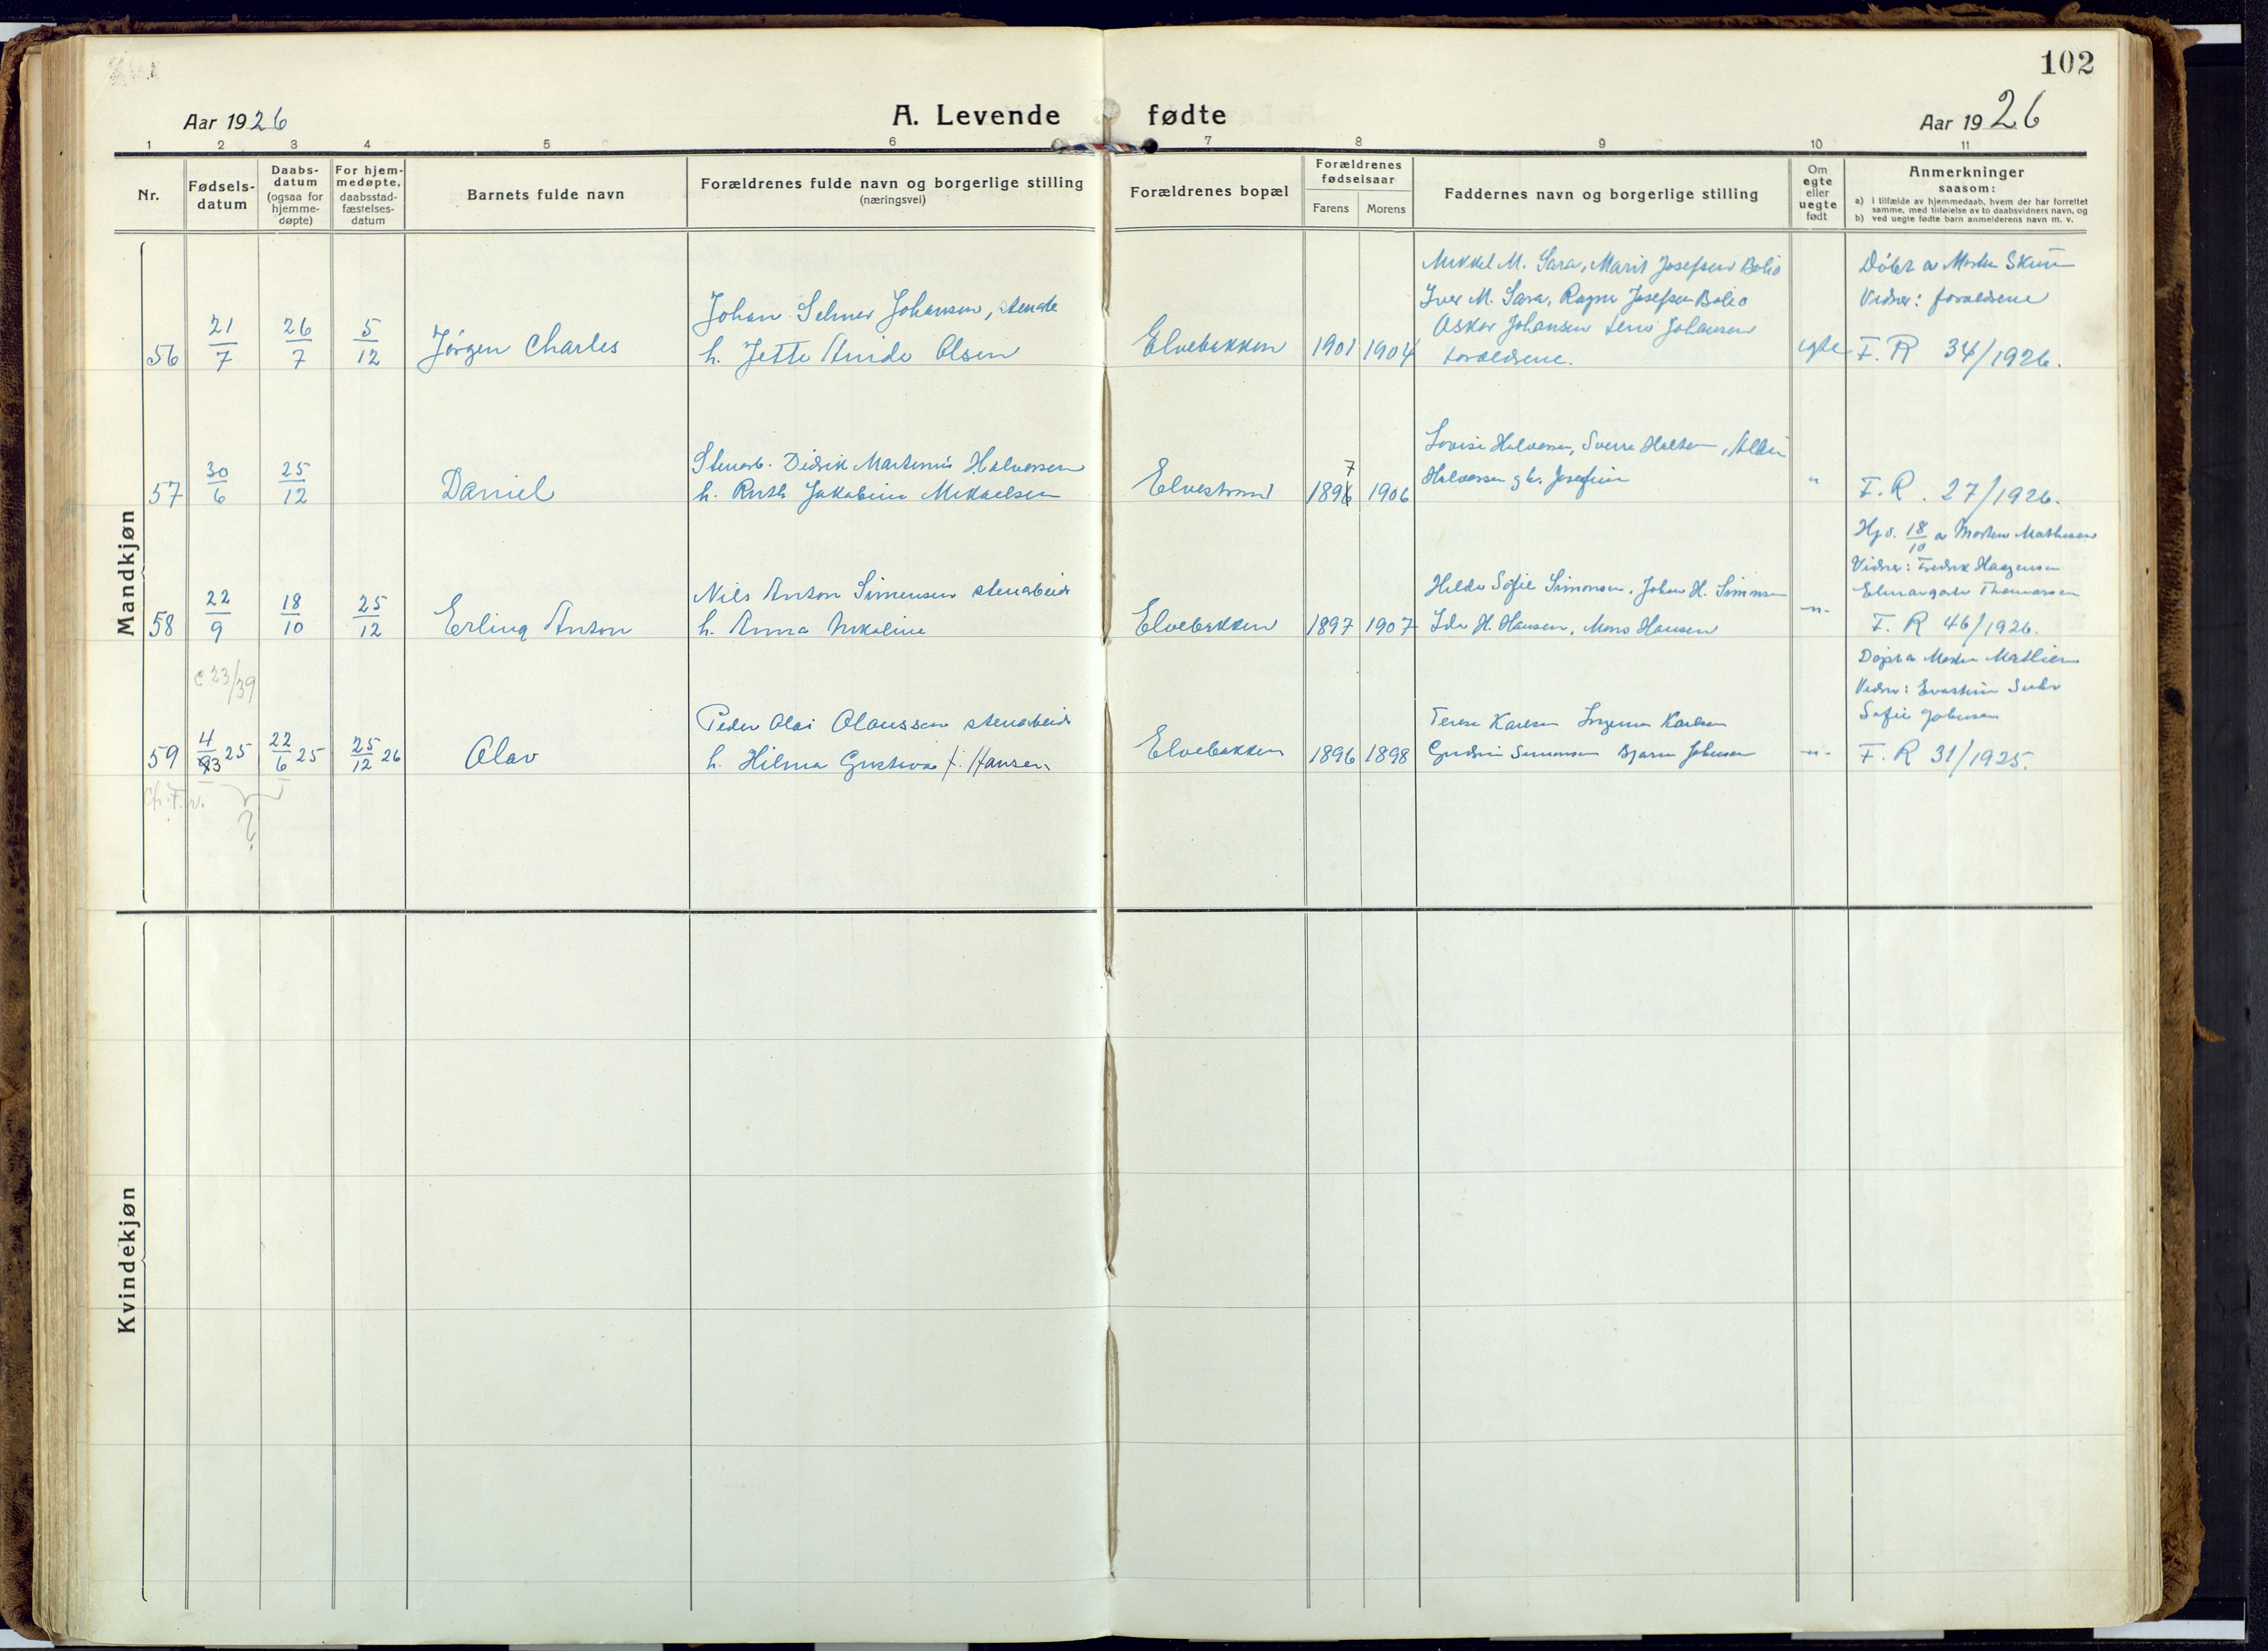 102
Aar 1926
A. Levende fødte
Aar 1926
1 2 3 4 5 6 7 8 9 10 11
Nr.
Fødsels-
datum
Daabs-
datum
(ogsaa for
hjemme-
døpte)
For hjem-
medøpte,
daabsstad-
fæstelses-
datum
Barnets fulde navn
Forældrenes fulde navn og borgerlige stilling
(næringsvei)
Forældrenes bopæl
Forældrenes
fødselsaar
Farens Morens
Faddernes navn og borgerlige stilling
Om
egte
eller
uegte
født
Anmerkninger
saasom:
a) i tilfælde av hjemmedaab, hvem der har forrettet
samme, med tilføielse av to daabsvidners navn, og
b) ved uegte fødte barn anmelderens navn m. v.
Mandkjøn
56 21/7 26/7 5/12 Jörgen Charles
Johan Selmer Johansen,
h. Jette Olsen
Elvebakken 1901 1904
Mikkel M. Sara, Marit Josefsen Bolio
Iver M. Sara, Ragna Josefsen Bolio
Oskar Johansen Johansen
Foreldrene.
egte
Döbt a Morten
Vidner: foreldrene
F. R 34/1926.
57 30/6 25/12 Daniel
Stenarb. Didrik Martinus Halvorsen
h. Ruth Jakobine Mikaelsen
Elvestrand 1896 7 1906
Lovise Halvorsen, Sverre
Halvorsen
"
F. R. 27/1926.
58 22/9 18/10 25/12 Erling Anton
Nils Anton Simensen stenarbeid
h. Anna Nikoline
Elvebakken 1897 1907
Hilda Sofie Simonsen, Johan H. Simonsen
Ida H. Hansen, Mons Hansen
-"-
Hjd. 18/10 a Morten Mathisen
Vidner: Fredrik
Thomassen
F. R 46/1926.
c 23/39
59 4/3 25 22/6 25 25/12 26 Olav
Peder Olai Olaussen stenarbeid
h. Hilma Gustava f. Hansen
Elvebakken 1896 1898
Karlsen Karlsen
Simonsen Bjarne Johnsen
-"-
Döpt a Morten
Vidner:
Sofie Johnsen
F. R 31/1925.
cfr. F. r.
?
Kvindekjøn